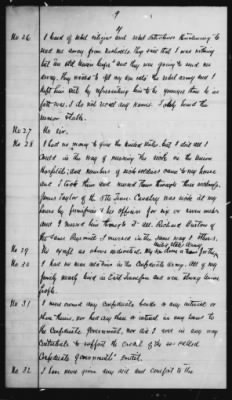 9
No 26 I heard of rebel citizens and rebel threatening to
send me away from Nashville. They said that I was nothing
but an old Union and they were going to send me
away. They tried to get my son into the rebel army and I
kept him out by representing him to be younger than he in
fact was. I do not recall any names. I only heard the
threats.
No 27 No sir.
No 28 I had no money to give the United States but I did all I
could in the way of nursing the sick in the Union
hospitals, and numbers of sick soldiers came to my house
and I took them and nursed them through their sickness.
James Taylor of the 5th Iowa Cavalry was sick at my
house by permission of his officers for six or seven weeks
and I nursed him through it. Also Richard of
the same Regiment I nursed in the same way & others.
No 29 No myself as above understood. My son
No 30 I had no near relatives in the Confederate Army. All of my
family nearly lived in East Tennessee and were strong Union
people.
No 31 I never owned any Confederate bonds or any interest or
share therein, nor had any share or interest in any loans to
the Confederate government, nor did I ever in any way
contribute to support the credit of the so called
Confederate government
No 32 I have never given any aid and comfort to the